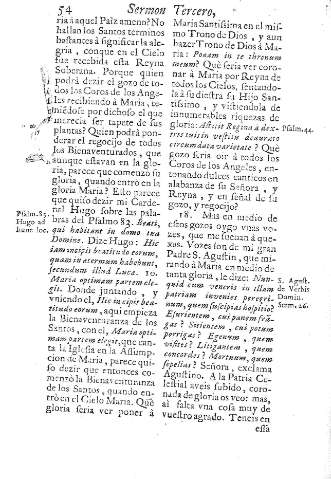 54 Sermon Tercero,
ria à aquel Paìz ameno? No
hallan los Santos terminos
bastantes à significar la ale-
gria, conque en el Cielo
fue recebida esta Reyna
Soberana. Porque quien
podrá dezir el gozo de to-
dos los Coros de los Ange-
les recibiendo à Maria, te-
niendose por dichoso el que
merecia ser tapete de sus
plantas? Quien podrà pon-
derar el regocijo de todos
los Bienaventurados, que
aunque estavan en la glo-
ria, parece que comenzo su
gloria, quando entrò en la
gloria Maria? Esto parece
que quiso dezir mi Carde-
nal Hugo sobre las pala-
bras del Psalmo 83. Beati,
qui habitant in domo tua
Domine. Dize Hugo: Hic
iam incipit beatitudo eorum,
quam in æternum habebunt,
secundum illud Lucæ. 10.
Maria optimam partem ele-
git. Donde juntando, y
vniendo el, Hic incipit bea-
titudo eorum, aqui empieza
la Bienaventuranza de los
Santos, con el, Maria opti-
mam partem elegit, que can-
ta la Iglesia en la Assump-
cion de Maria, parece qui-
so dezir que entonces co-
menzò la Bienaventuranza
de los Santos, quando en-
trò en el Cielo Maria. Què
gloria seria ver poner à
Psalm. 83.
Hugo ad
hunc loc.
Maria Santissima en el mis-
mo Trono de Dios, y aun
hazer Trono de Dios à Ma-
ria: Ponam in te thronum
meum? Què seria ver coro-
nar à Maria por Reyna de
todos los Cielos, sentando-
la à su diestra su Hijo San-
tissimo, y vistiendola de
innumerables riquezas de
gloria: Astitit Regina à dex-
tris tuis in vestitu deaurato
circumdata varietate? Què
gozo seria oir à todos los
Coros de los Angeles, en-
tonando dulces canticos en
alabanza de su Señora, y
Reyna, y en señal de su
gozo, y regocijo?
18. Mas en medio de
essos gozos oygo vnas vo-
zes, que me suenan à que-
xas. Vozes son de mi gran
Padre S. Augustin, que mi-
rando à Maria en medio de
tanta gloria, le dize: Nun-
quid cum veneris in illam
patriam invenies peregri-
num, quem suscipias hospitio?
Esurientem, cui panem fran-
gas? Sitientem, cui potum
porrigas? Egenum, quem
vestias? Litigantem, quem
concordes? Mortuum, quem
sepelias? Señora, exclama
Agustino. A la Patria Ce-
lestial aveis subido, coro-
nada de gloria os veo: mas,
al falta vna cosa muy de
vuestro agrado. Teneis en
essa
Psalm. 44.
S. Agust.
de Verbis
Domin.
serm. 26.